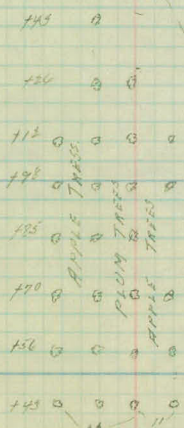 +43
+26
+12
+98
+85
+70
+56
+43
APPLE TREES
PLUM TREES
APPLE TREES